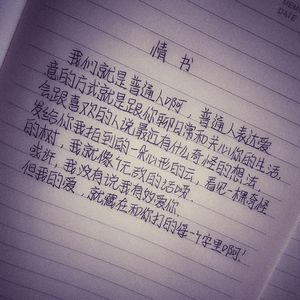 情书
我们就是普通人啊，普通人表达爱
意的方式就是跟你聊日常和关心你的生活，
会跟喜欢的人说最近有什么奇怪的想法，
发给你我拍到的一朵心形的云，看见一棵奇怪
的树，我就像个无敌的话唠，
或许，我没有说我有多爱你
但我的爱，就藏在和你打的每一个字里啊！